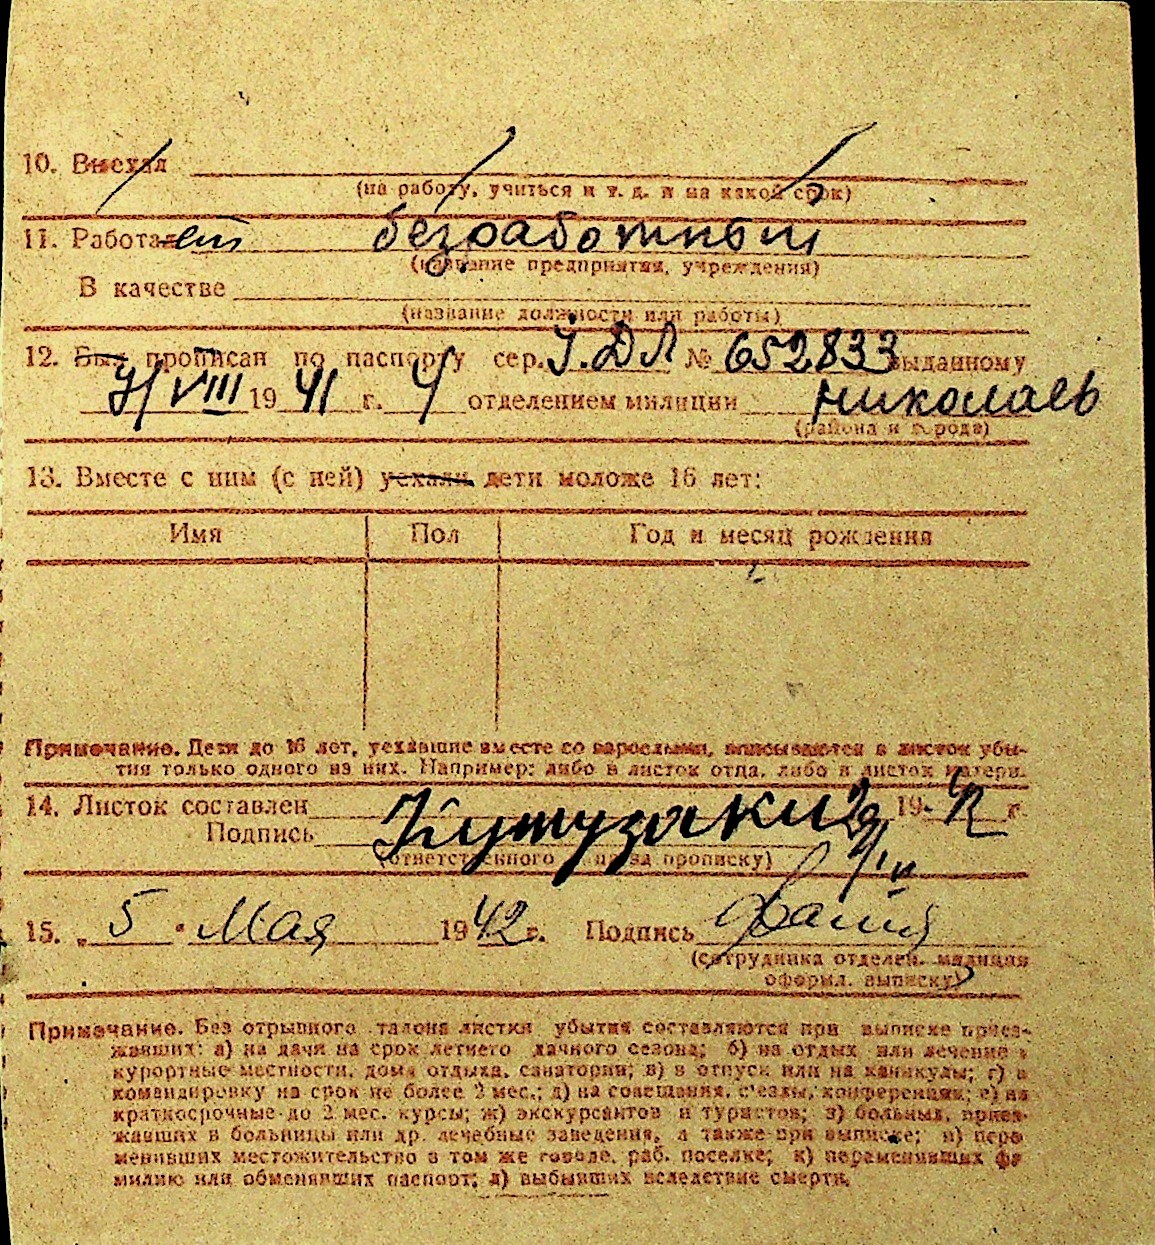 10. Выехал
(на работу, учиться и т. д. и на какой срок)
11. Работает безработный
(название предприятия, учреждения)
В качестве
(название должности или работы)
12. Был прописан по паспорту сер. I.ДЛ № 652833 выданному
7/VIII 1941 г. 4 отделением милиции Николаев
(района и города)
13. Вместе с ним (с ней) уехали дети моложе 16 лет:
Имя Пол Год и месяц рождения
Примечание. Дети до 16 лет, уехавшие вместе со взрослыми, вписываются в листок убы-
тия только одного из них. Например: либо в листок отца, либо в листок матери.
14. Листок составлен 19 42 г.
Подпись
(ответственного за прописку)
15. „5" Мая 1942 г. Подпись
(сотрудника отделен. милиции
оформл. выписку)
Примечание. Без отрывного талона листки убытия составляются при выписке приез-
жавших: а) на дачи на срок летнего дачного сезона; б) на отдых или лечение в
курортные местности, дома отдыха, санатории; в) в отпуск или на каникулы; г) в
командировку на срок не более 2 мес.; д) на совещания, съезды, конференции; е) на
краткосрочные до 2 мес. курсы; ж) экскурсантов и туристов; з) больных, приез-
жавших в больницы или др. лечебные заведения, а также при выписке; и) пере
менивших местожительство в том же городе, раб. поселке; к) переменивших фа
милию или обменявших паспорт; л) выбывших вследствие смерти.